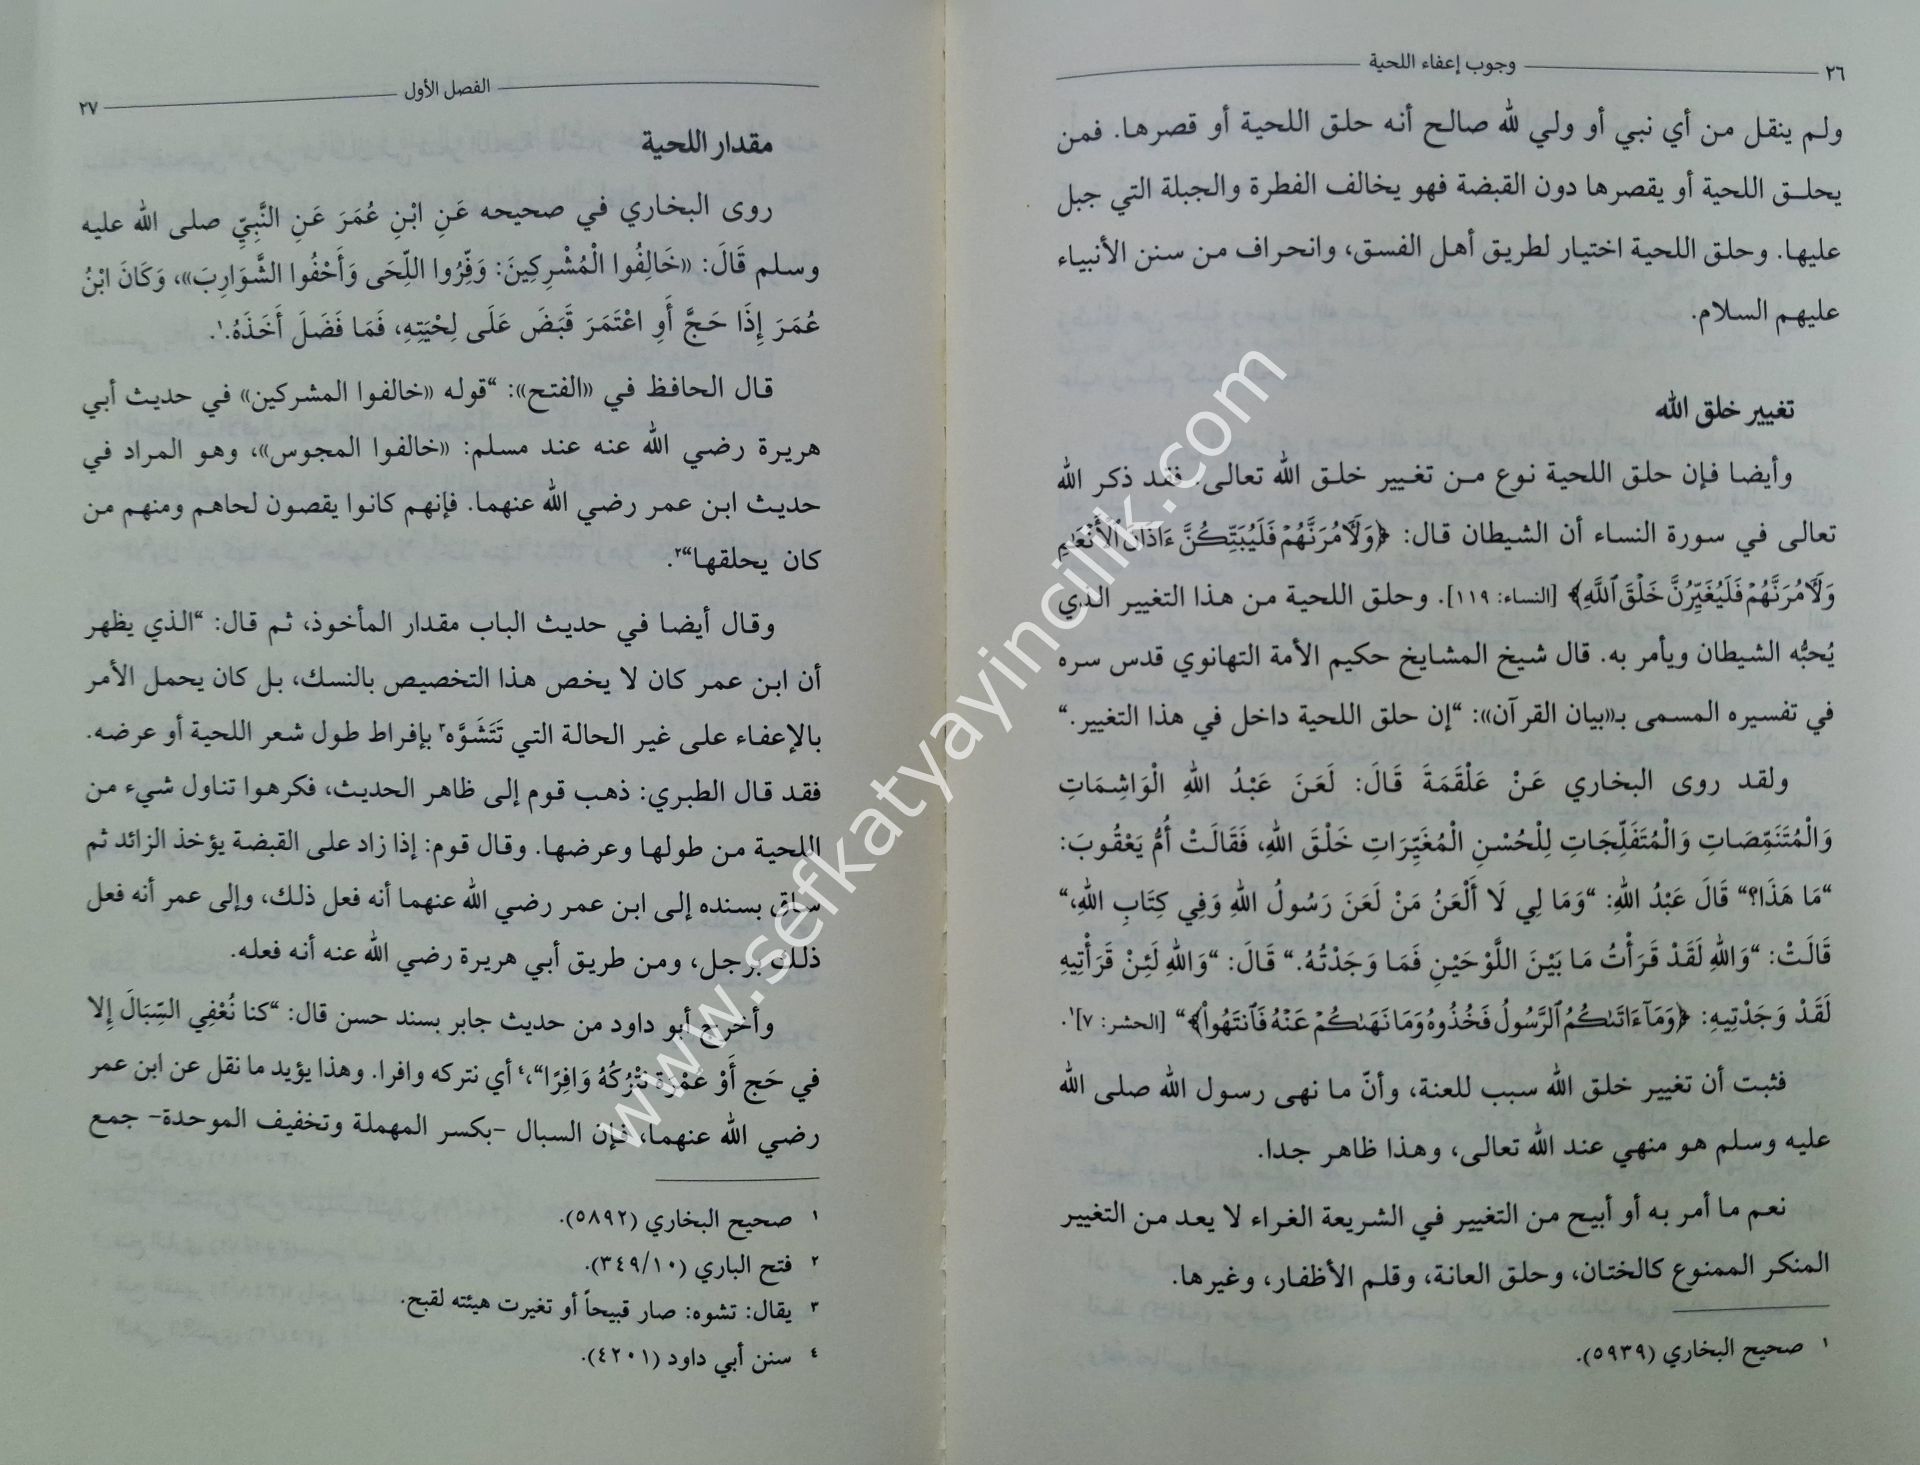 ٢٦
وجوب إعفاء اللحية
ولم ينقل من أي نبي أو ولي لله صالح أنه حلق اللحية أو قصرها. فمن
يحلق اللحية أو يقصرها دون القبضة فهو يخالف الفطرة والجبلة التي جبل
عليها. وحلق اللحية اختيار لطريق أهل الفسق، وانحراف من سنن الأنبياء
عليهم السلام.
تغيير خلق الله
وأيضا فإن حلق اللحية نوع من تغيير خلق الله تعالى. فقد ذكر الله
تعالى في سورة النساء أن الشيطان قال: ﴿وَلَأٓمُرَنَّهُمْ فَلَيُبَتِّكُنَّ ءَاذَانَ ٱلْأَنْعَٰمِ
وَلَأٓمُرَنَّهُمْ فَلَيُغَيِّرُنَّ خَلْقَ ٱللَّهِ﴾ [النساء: ١١٩]. وحلق اللحية من هذا التغيير الذي
يُحبُّه الشيطان ويأمر به. قال شيخ المشايخ حكيم الأمة التهانوي قدس سره
في تفسيره المسمى بـ«بيان القرآن»: “إن حلق اللحية داخل في هذا التغيير.“
ولقد روى البخاري عَنْ عَلْقَمَةَ قَالَ: لَعَنَ عَبْدُ اللهِ الْوَاشِمَاتِ
وَالْمُتَنَمِّصَاتِ وَالْمُتَفَلِّجَاتِ لِلْحُسْنِ الْمُغَيِّرَاتِ خَلْقَ اللهِ، فَقَالَتْ أُمُّ يَعْقُوبَ:
“مَا هَذَا؟“ قَالَ عَبْدُ اللهِ: “وَمَا لِي لَا أَلْعَنُ مَنْ لَعَنَ رَسُولُ اللهِ وَفِي كِتَابِ اللهِ،“
قَالَتْ: “وَاللهِ لَقَدْ قَرَأْتُ مَا بَيْنَ اللَّوْحَيْنِ فَمَا وَجَدْتُهُ.“ قَالَ: “وَاللهِ لَئِنْ قَرَأْتِيهِ
لَقَدْ وَجَدْتِيهِ: ﴿وَمَآ ءَاتَىٰكُمُ ٱلرَّسُولُ فَخُذُوهُ وَمَا نَهَىٰكُمْ عَنْهُ فَٱنتَهُوا۟﴾“ [الحشر: ٧]١.
فثبت أن تغيير خلق الله سبب للعنة، وأنّ ما نهى رسول الله صلى الله
عليه وسلم هو منهي عند الله تعالى، وهذا ظاهر جدا.
نعم ما أمر به أو أبيح من التغيير في الشريعة الغراء لا يعد من التغيير
المنكر الممنوع كالختان، وحلق العانة، وقلم الأظفار، وغيرها.
١ صحيح البخاري (٥٩٣٩).
الفصل الأول
٢٧
مقدار اللحية
روى البخاري في صحيحه عَنِ ابْنِ عُمَرَ عَنِ النَّبِيِّ صلى الله عليه
وسلم قَالَ: «خَالِفُوا الْمُشْرِكِينَ: وَفِّرُوا اللِّحَى وَأَحْفُوا الشَّوَارِبَ»، وَكَانَ ابْنُ
عُمَرَ إِذَا حَجَّ أَوِ اعْتَمَرَ قَبَضَ عَلَى لِحْيَتِهِ، فَمَا فَضَلَ أَخَذَهُ.١.
قال الحافظ في «الفتح»: “قوله «خالفوا المشركين» في حديث أبي
هريرة رضي الله عنه عند مسلم: «خالفوا المجوس»، وهو المراد في
حديث ابن عمر رضي الله عنهما. فإنهم كانوا يقصون لحاهم ومنهم من
كان يحلقها“٢.
وقال أيضا في حديث الباب مقدار المأخوذ، ثم قال: “الذي يظهر
أن ابن عمر كان لا يخص هذا التخصيص بالنسك، بل كان يحمل الأمر
بالإعفاء على غير الحالة التي تَتَشَوَّه٣ بإفراط طول شعر اللحية أو عرضه.
فقد قال الطبري: ذهب قوم إلى ظاهر الحديث، فكرهوا تناول شيء من
اللحية من طولها وعرضها. وقال قوم: إذا زاد على القبضة يؤخذ الزائد ثم
ساق بسنده إلى ابن عمر رضي الله عنهما أنه فعل ذلك، وإلى عمر أنه فعل
ذلك برجل، ومن طريق أبي هريرة رضي الله عنه أنه فعله.
وأخرج أبو داود من حديث جابر بسند حسن قال: “كنا نُعْفِي السِّبَالَ إِلا
في حَج أَوْ عمْرة نتْرُكُهُ وَافِرًا“،٤ أي نتركه وافرا. وهذا يؤيد ما نقل عن ابن عمر
رضي الله عنهما، فإن السبال -بكسر المهملة وتخفيف الموحدة- جمع
١ صحيح البخاري (٥٨٩٢).
٢ فتح الباري (٣٤٩/١٠).
٣ يقال: تشوه: صار قبيحاً أو تغيرت هيئته لقبح.
٤ سنن أبي داود (٤٢٠١).
www.sefkatyayincilik.com